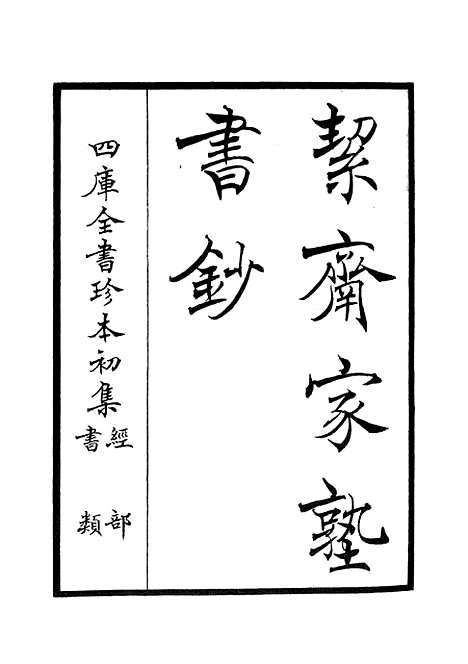 絜齋家塾
書鈔
四庫全書珍本初集
經部
書類